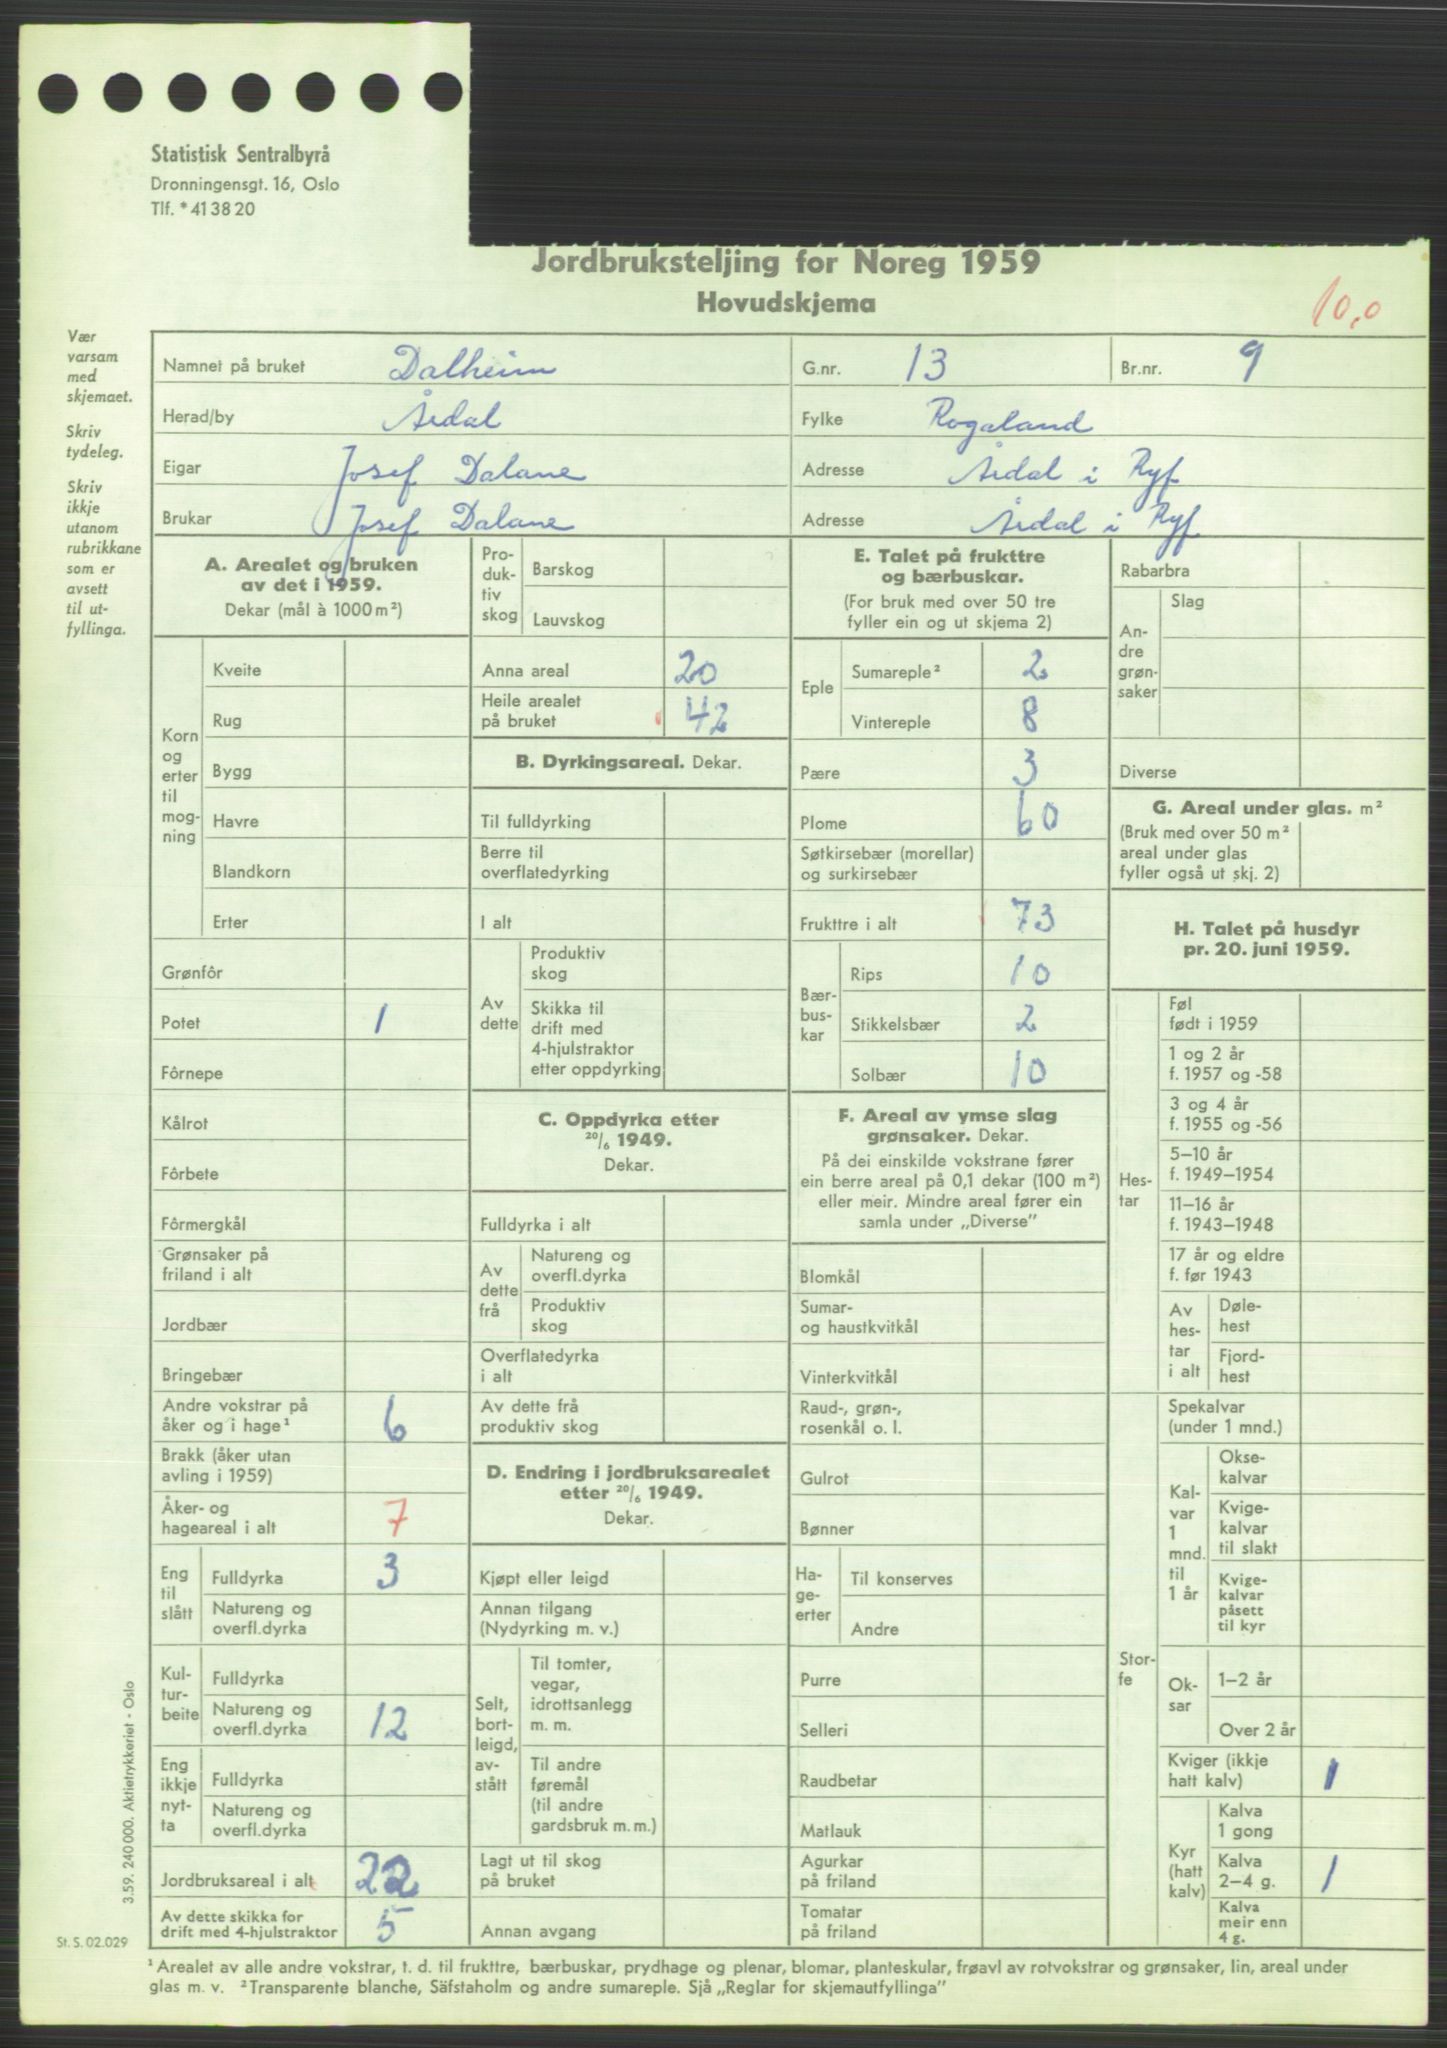 Statistisk Sentralbyrå
Dronningensgt. 16, Oslo
Tlf. *41 38 20
Jordbruksteljing for Noreg 1959
Hovudskjema
10,0
Vær
varsam
med
skjemaet.
Skriv
tydeleg.
Skriv
ikkje
utanom
rubrikkane
som er
avsett
til ut-
fyllinga.
Namnet på bruket Dalheim G.nr. 13 Br.nr. 9
Herad/by Årdal Fylke Rogaland
Eigar Josef Dalane Adresse Årdal i Ryf
Brukar Josef Dalane Adresse Årdal i Ryf
A. Arealet og bruken
av det i 1959.
Dekar (mål à 1000 m²)
Korn
og
erter
til
mog-
ning
Kveite
Rug
Bygg
Havre
Blandkorn
Erter
Grønfôr
Potet 1
Fôrnepe
Kålrot
Fôrbete
Fôrmergkål
Grønsaker på
friland i alt
Jordbær
Bringebær
Andre vokstrar på
åker og i hage¹ 6
Brakk (åker utan
avling i 1959)
Åker- og
hageareal i alt 7
Eng
til
slått
Fulldyrka 3
Natureng og
overfl.dyrka
Kul-
tur-
beite
Fulldyrka
Natureng og
overfl.dyrka 12
Eng
ikkje
nyt-
ta
Fulldyrka
Natureng og
overfl.dyrka
Jordbruksareal i alt 22
Av dette skikka for
drift med 4-hjulstraktor 5
Pro-
duk-
tiv
skog
Barskog
Lauvskog
Anna areal 20
Heile arealet
på bruket 42
B. Dyrkingsareal. Dekar.
Til fulldyrking
Berre til
overflatedyrking
I alt
Av
dette
Produktiv
skog
Skikka til
drift med
4-hjulstraktor
etter oppdyrking
C. Oppdyrka etter
20/6 1949.
Dekar.
Fulldyrka i alt
Av
dette
frå
Natureng og
overfl.dyrka
Produktiv
skog
Overflatedyrka
i alt
Av dette frå
produktiv skog
D. Endring i jordbruksarealet
etter 20/6 1949.
Dekar.
Kjøpt eller leigd
Annan tilgang
(Nydyrking m. v.)
Selt,
bort-
leigd,
av-
stått
Til tomter,
vegar,
idrottsanlegg
m. m.
Til andre
føremål
(til andre
gardsbruk m. m.)
Lagt ut til skog
på bruket
Annan avgang
E. Talet på frukttre
og bærbuskar.
(For bruk med over 50 tre
fyller ein og ut skjema 2)
Eple
Sumareple² 2
Vintereple 8
Pære 3
Plome 60
Søtkirsebær (morellar)
og surkirsebær
Frukttre i alt 73
Bær-
bus-
kar
Rips 10
Stikkelsbær 2
Solbær 10
F. Areal av ymse slag
grønsaker. Dekar.
På dei einskilde vokstrane fører
ein berre areal på 0,1 dekar (100 m²)
eller meir. Mindre areal fører ein
samla under „Diverse”
Blomkål
Sumar-
og haustkvitkål
Vinterkvitkål
Raud-, grøn-,
rosenkål o. l.
Gulrot
Bønner
Ha-
ge-
erter
Til konserves
Andre
Purre
Selleri
Raudbetar
Matlauk
Agurkar
på friland
Tomatar
på friland
Rabarbra
An-
dre
grøn-
saker
Slag
Diverse
G. Areal under glas. m²
(Bruk med over 50 m²
areal under glas
fyller også ut skj. 2)
H. Talet på husdyr
pr. 20. juni 1959.
Hes-
tar
Føl
født i 1959
1 og 2 år
f. 1957 og -58
3 og 4 år
f. 1955 og -56
5–10 år
f. 1949–1954
11–16 år
f. 1943–1948
17 år og eldre
f. før 1943
Av
hes-
tar
i alt
Døle-
hest
Fjord-
hest
Stor-
fe
Spekalvar
(under 1 mnd.)
Kal-
var
1
mnd.
til
1 år
Okse-
kalvar
Kvige-
kalvar
til slakt
Kvige-
kalvar
påsett
til kyr
Ok-
sar
1–2 år
Over 2 år
Kviger (ikkje
hatt kalv) 1
Kyr
(hatt
kalv)
Kalva
1 gong
Kalva
2–4 g. 1
Kalva
meir enn
4 g.
3.59. 240 000. Aktietrykkeriet - Oslo
St. S. 02.029
¹ Arealet av alle andre vokstrar, t. d. til frukttre, bærbuskar, prydhage og plenar, blomar, planteskular, frøavl av rotvokstrar og grønsaker, lin, areal under
glas m. v. ² Transparente blanche, Säfstaholm og andre sumareple. Sjå „Reglar for skjemautfyllinga”